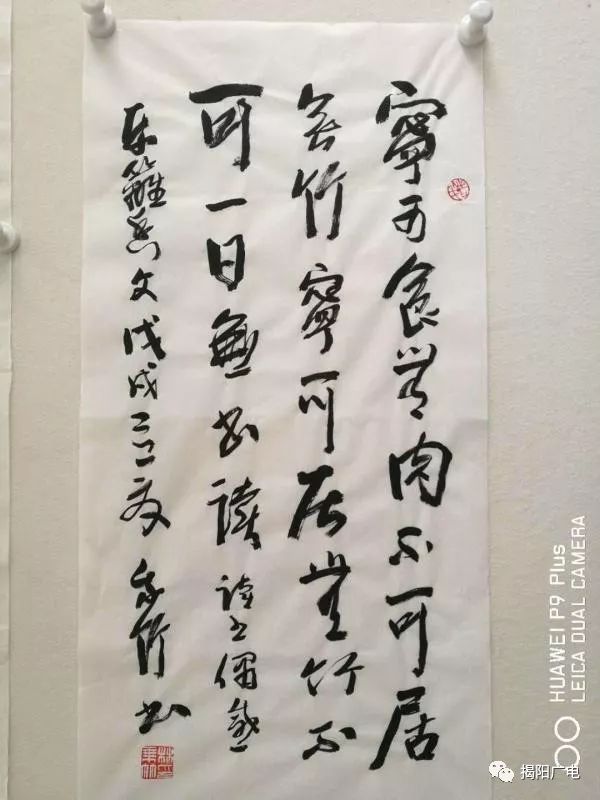 寧可食無肉不可居
無竹寧可居無竹不
可一日無書讀 读书偶感
东籬文戊戌夏竹书
HUAWEI P9 Plus
LEICA DUAL CAMERA
揭阳广电